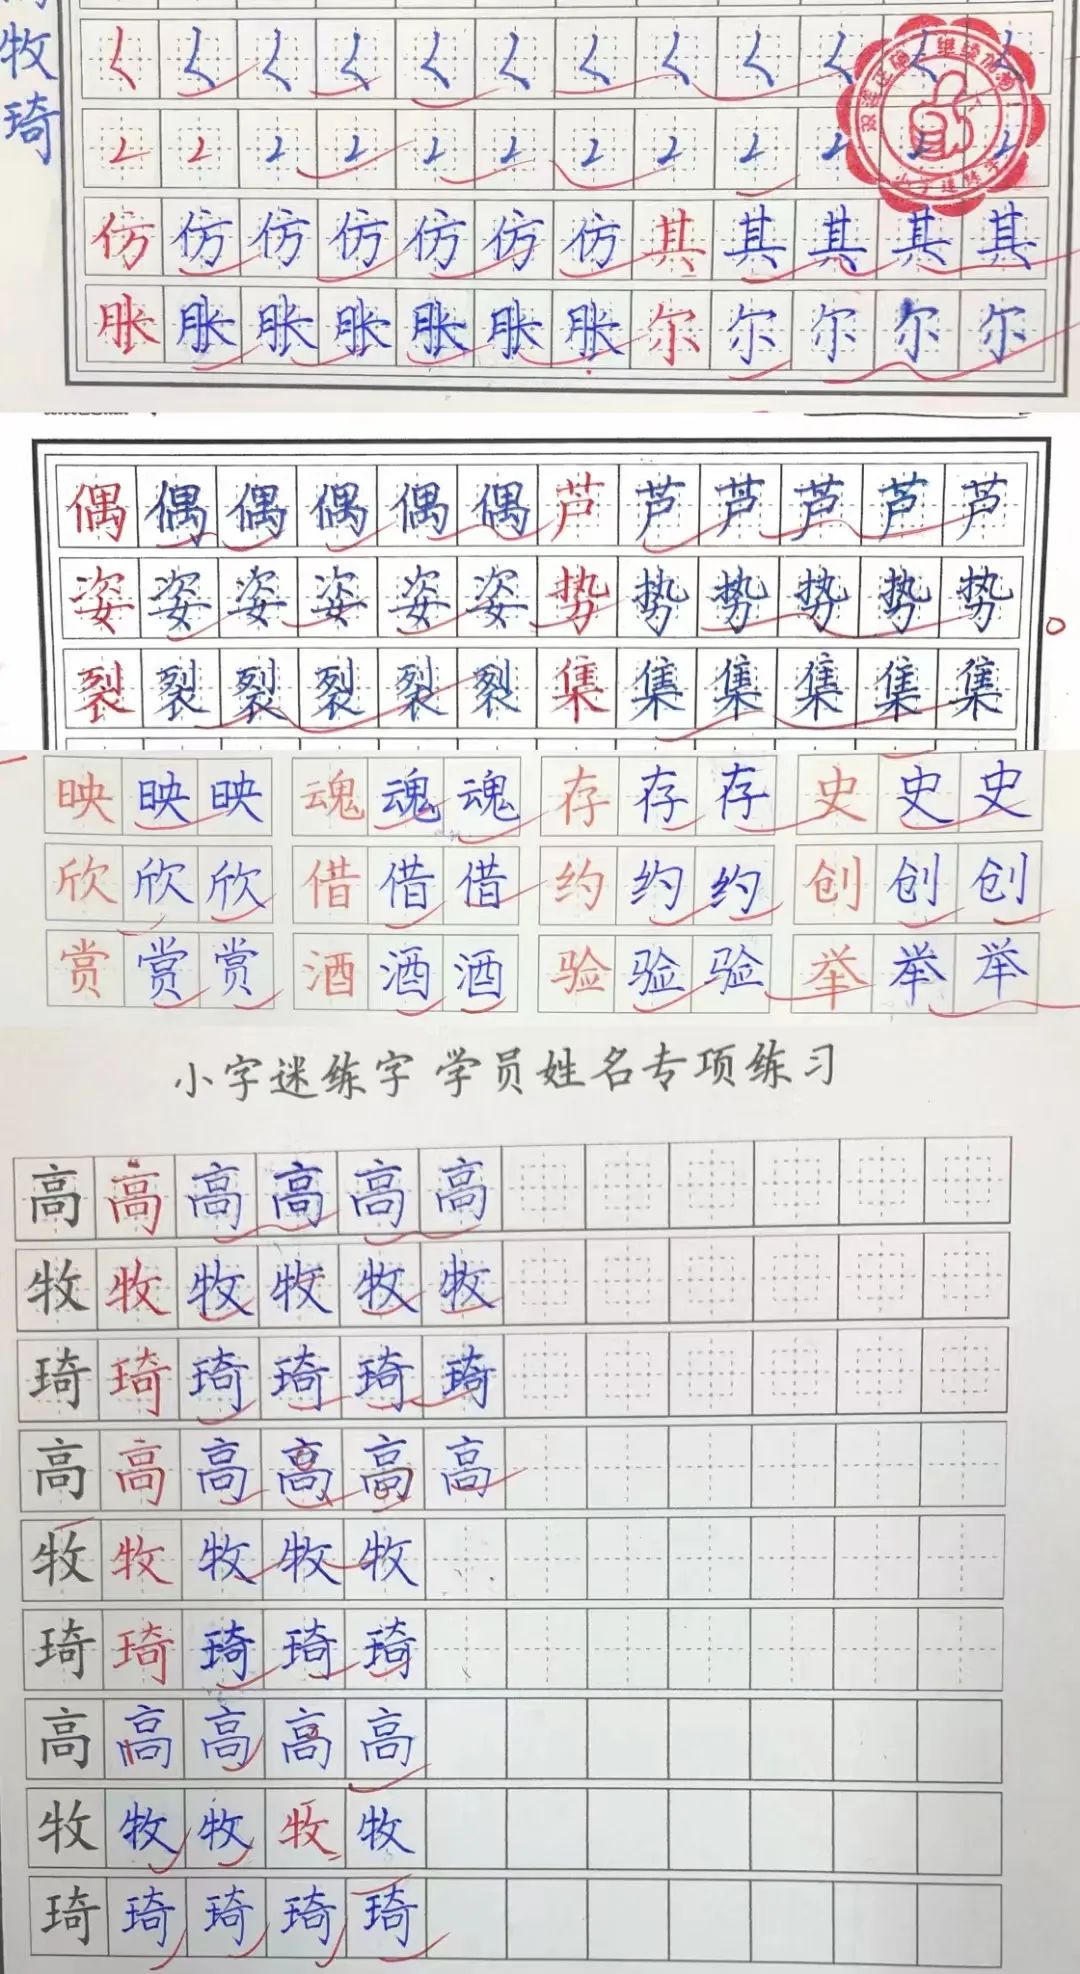 牧
琦
小字迷练字
仿仿仿仿仿仿仿其其其其其
胀胀胀胀胀胀胀尔尔尔尔尔
偶偶偶偶偶偶芦芦芦芦芦芦
姿姿姿姿姿姿势势势势势势
裂裂裂裂裂裂集集集集集集
映映映 魂魂魂 存存存 史史史
欣欣欣 借借借 约约约 创创创
赏赏赏 酒酒酒 验验验 举举举
小字迷练字 学员姓名专项练习
高高高高高高
牧牧牧牧牧牧
琦琦琦琦琦琦
高高高高高高
牧牧牧牧牧
琦琦琦琦琦
高高高高高
牧牧牧牧牧
琦琦琦琦琦